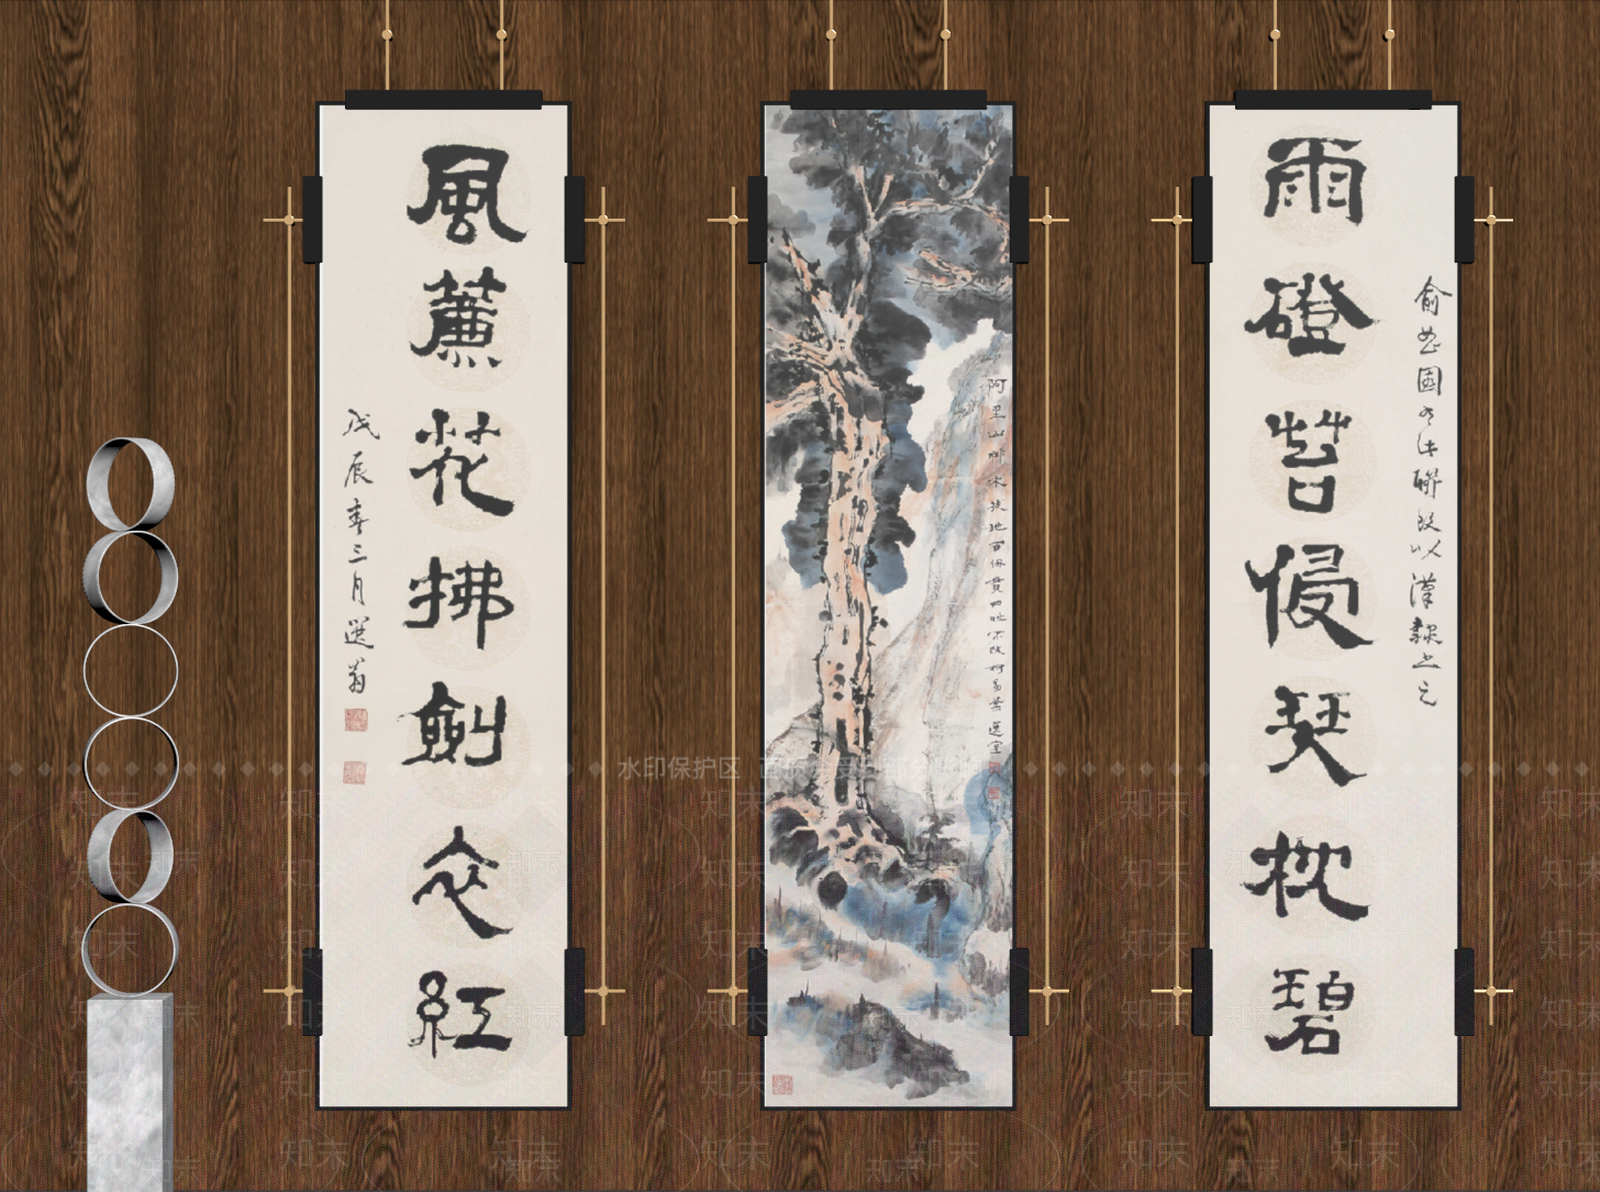 雨磴苔侵琴枕碧
俞曲園有此聯改以漢隸書之
阿里山神木拔地百仞貫四時不改柯易葉 選堂
風簾花拂劍衣紅
戊辰春三月選翁
水印保护区
知末